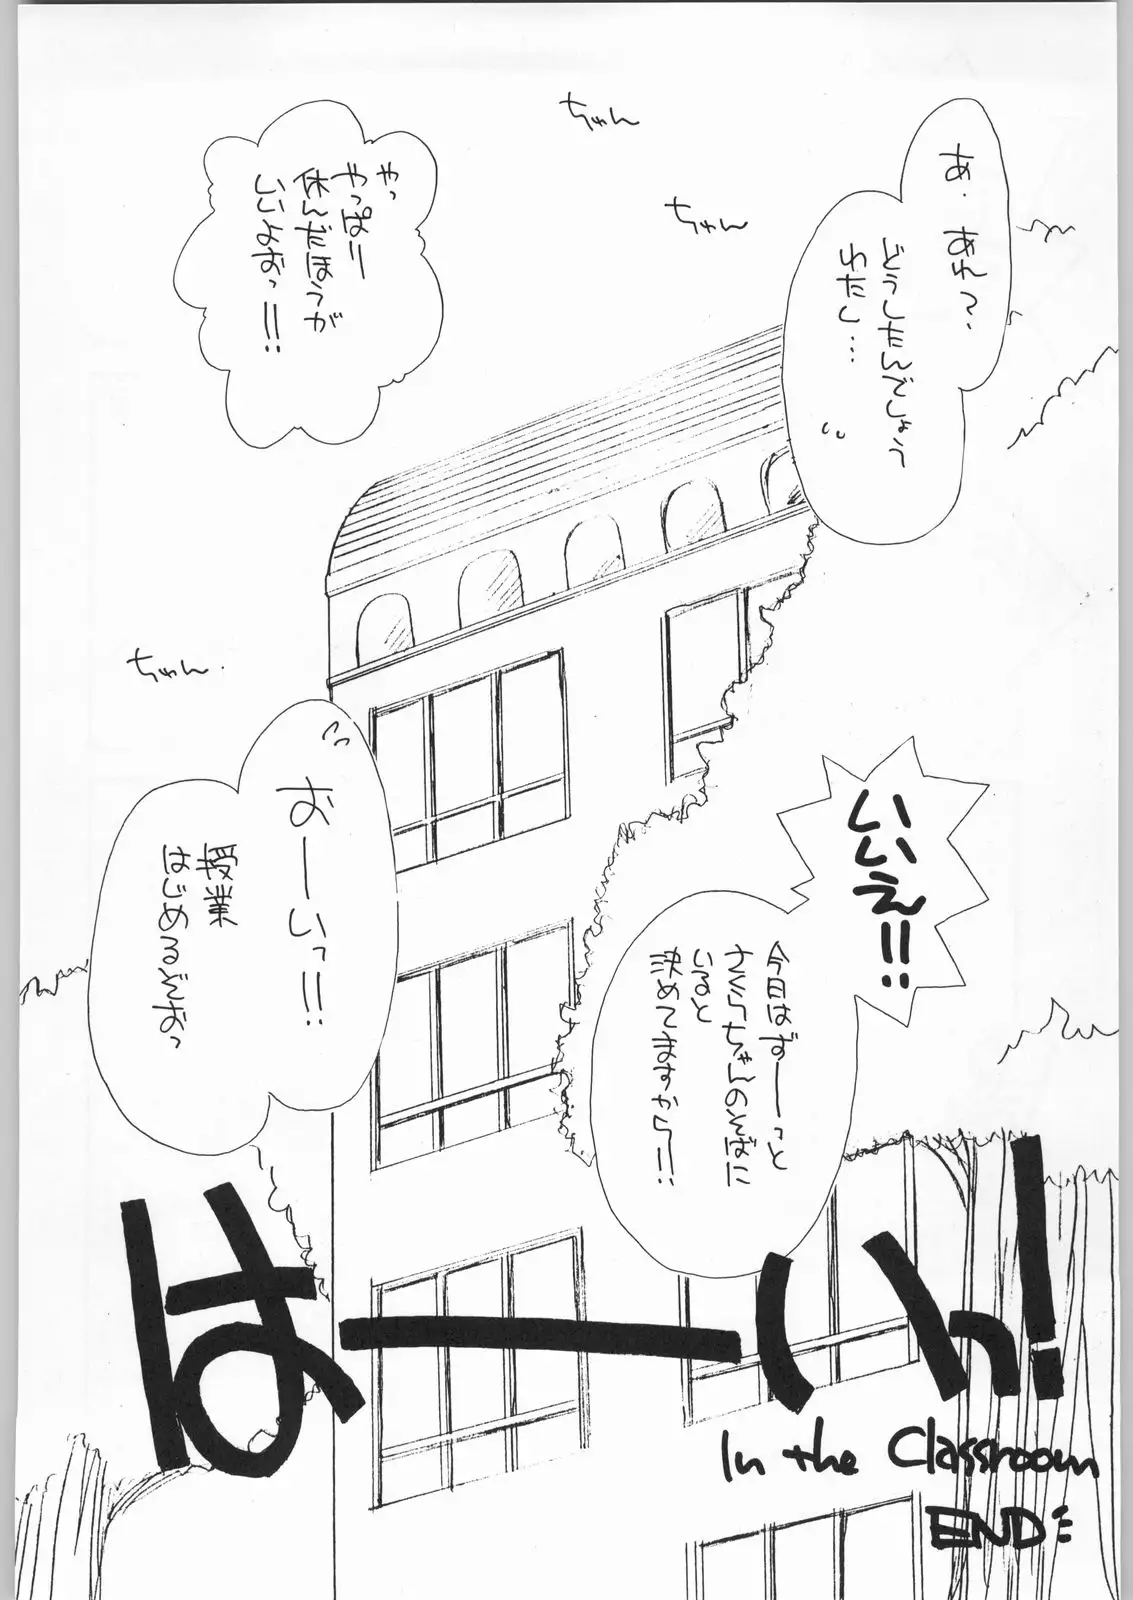 あ、あれ？
どうしたんでしょう
わたし…
ちゃん
ちゃん
やっ
やっぱり
休んだほうが
いいよおっ!!
いいえ!!
今日はずーーっと
さくらちゃんのそばに
いると
決めてますから!!
ちゃん
おーいっ!!
授業
はじめるぞおっ
はーいっ!
In the Classroom
END